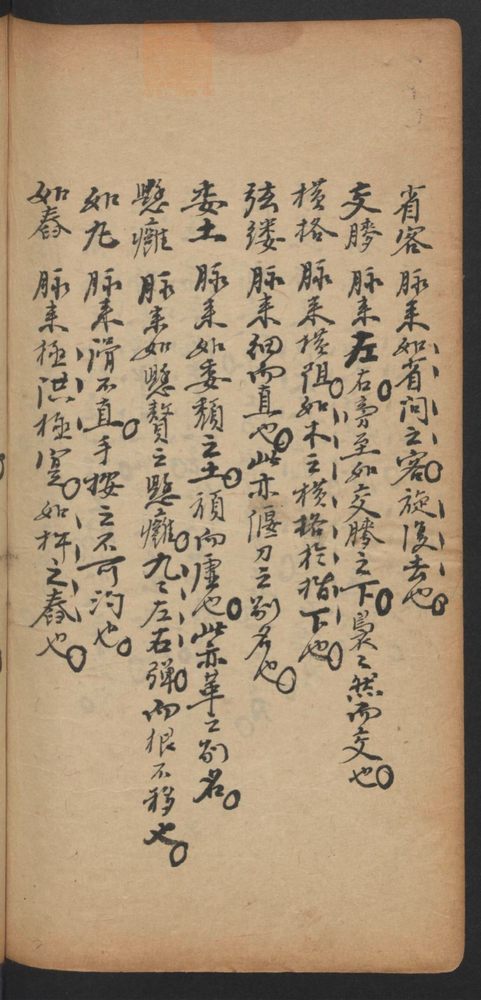 省客 脉来如省问之客。旋復去也。
交朥 脉来左右旁至如交朥之下。裊〻然而交也。
横格 脉来横阻。如木之横格於指下也。
弦缕 脉来细而直也。此亦偃刀之别名也。
委土 脉来如委頽之土。頑而虚也。此亦革之别名。
懸癰 脉来如懸贅之懸癰。丸〻左右弹。而根不移也。
如丸 脉来滑不直。手按之不可得也。
如舂 脉来極洪極實。如杵之舂也。